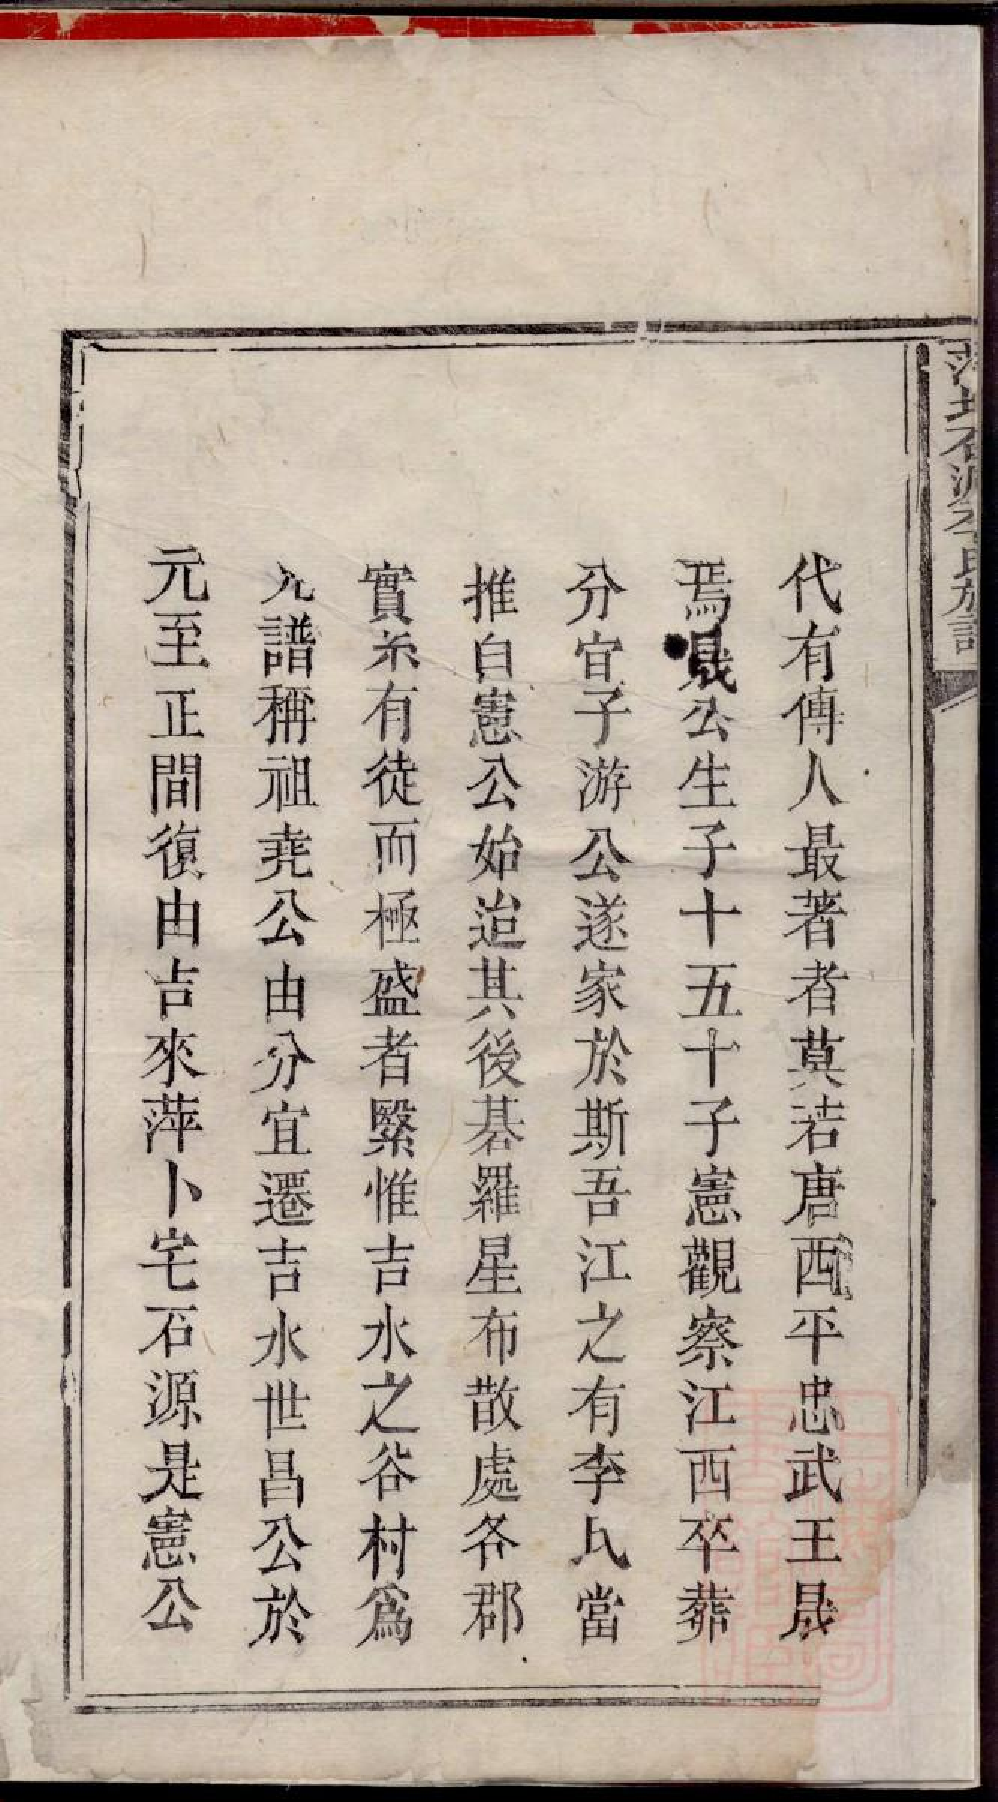 代有傳人最著者莫若唐西平忠武王晟
焉晟公生子十五十子憲觀察江西卒葬
分宜子游公遂家於斯吾江之有李氏當
推自憲公始迨其後碁羅星布散處各郡
實系有徒而極盛者緊惟吉水之谷村爲
尤譜稱祖堯公由分宜遷吉水世昌公於
元至正間復由吉來萍卜宅石源是憲公
石源李氏族譜